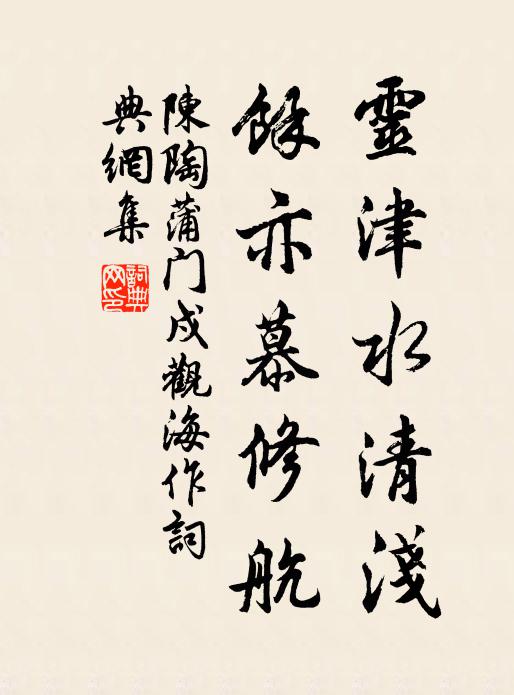 靈津水清淺
餘亦慕修航
陳陶蒲门戍觀海作詞
典網集
詞典网印